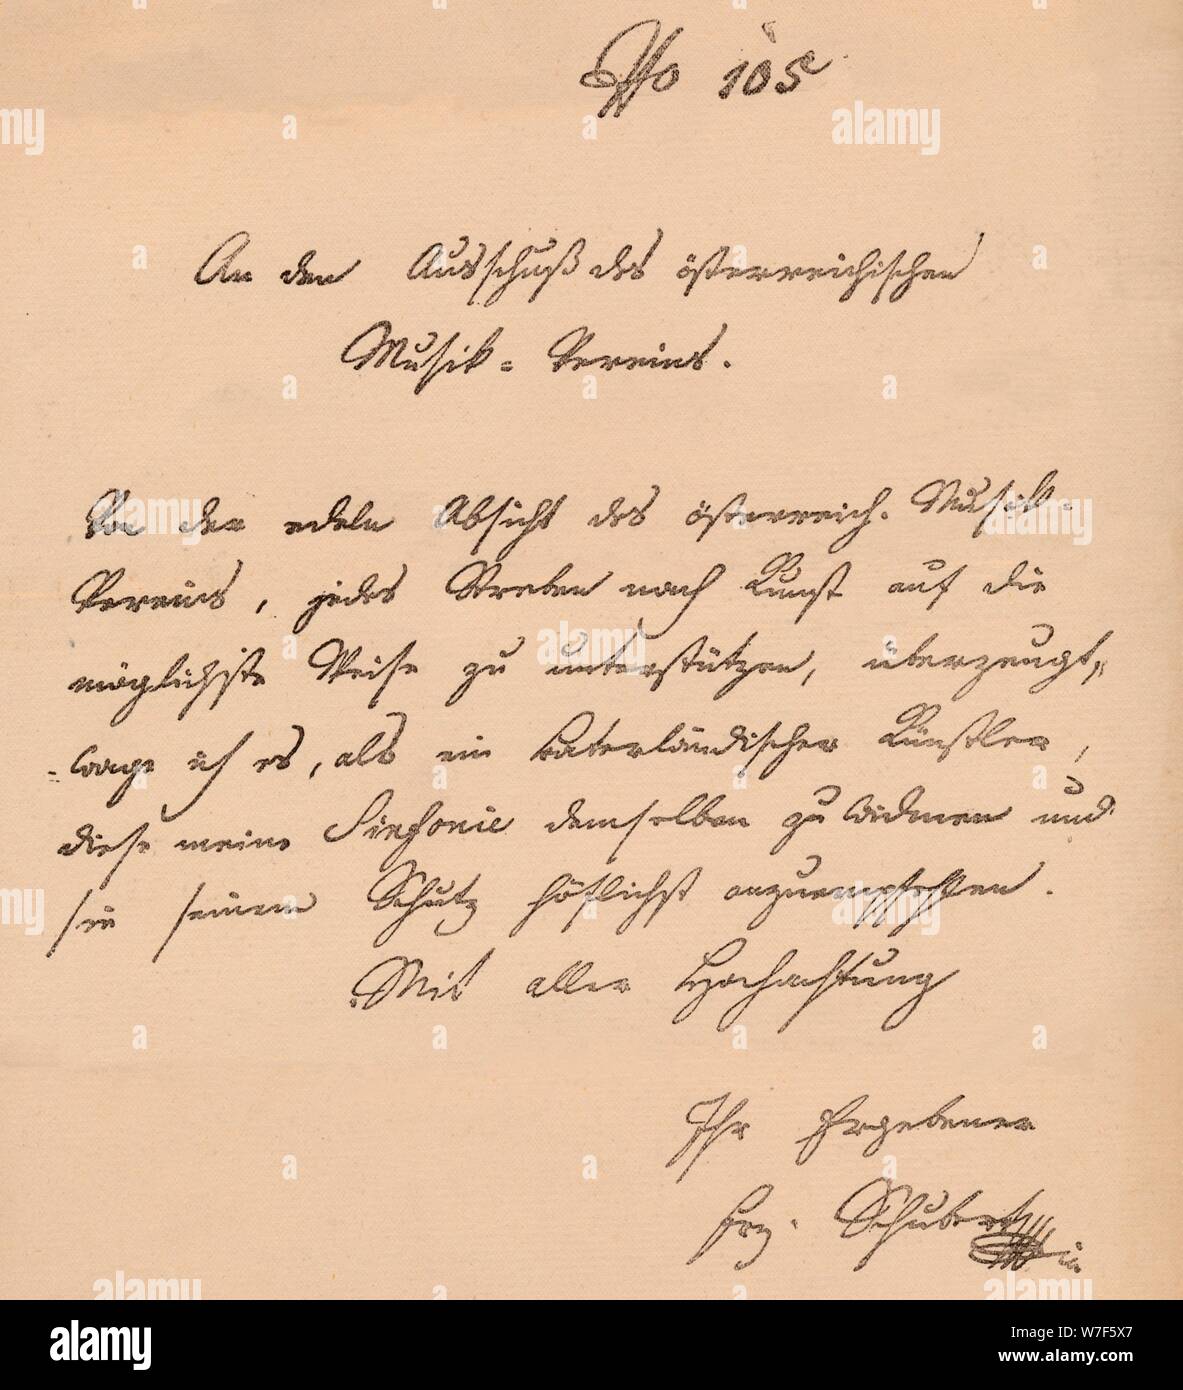 No 105
An den Ausschuß des österreichischen
Musik = Vereins.
Von der edeln Absicht des österreich. Musik-
Vereins, jedes Streben nach Kunst auf die
möglichste Weise zu unterstützen, überzeugt,
wage ich es, als ein vaterländischer Künstler,
diese meine Sinfonie demselben zu widmen und
sie seinem Schutz höflichst anzuempfehlen.
Mit aller Hochachtung
Ihr Ergebener
Frz. Schubert
alamy
W7F5X7
www.alamy.com